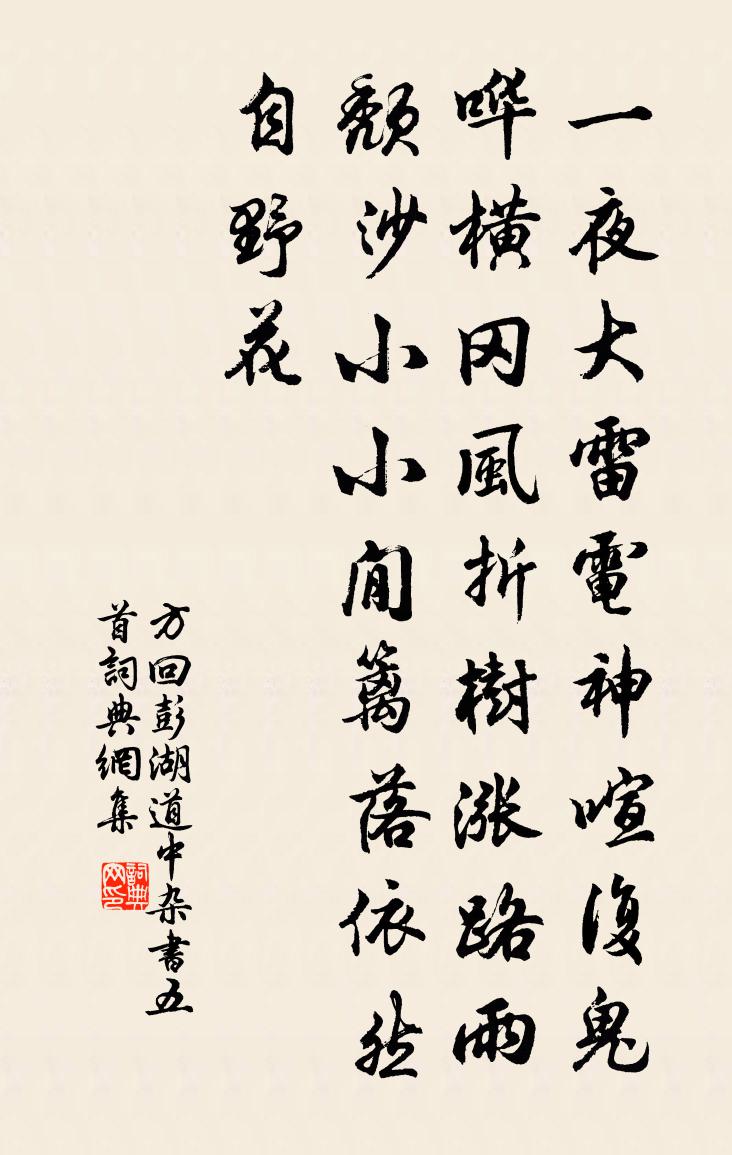 一夜大雷電神喧復鬼
哗横冈風折樹漲路雨
頽沙小小閒籬落依然
自野花
方回彭湖道中杂書五
首詞典網集
詞典网印